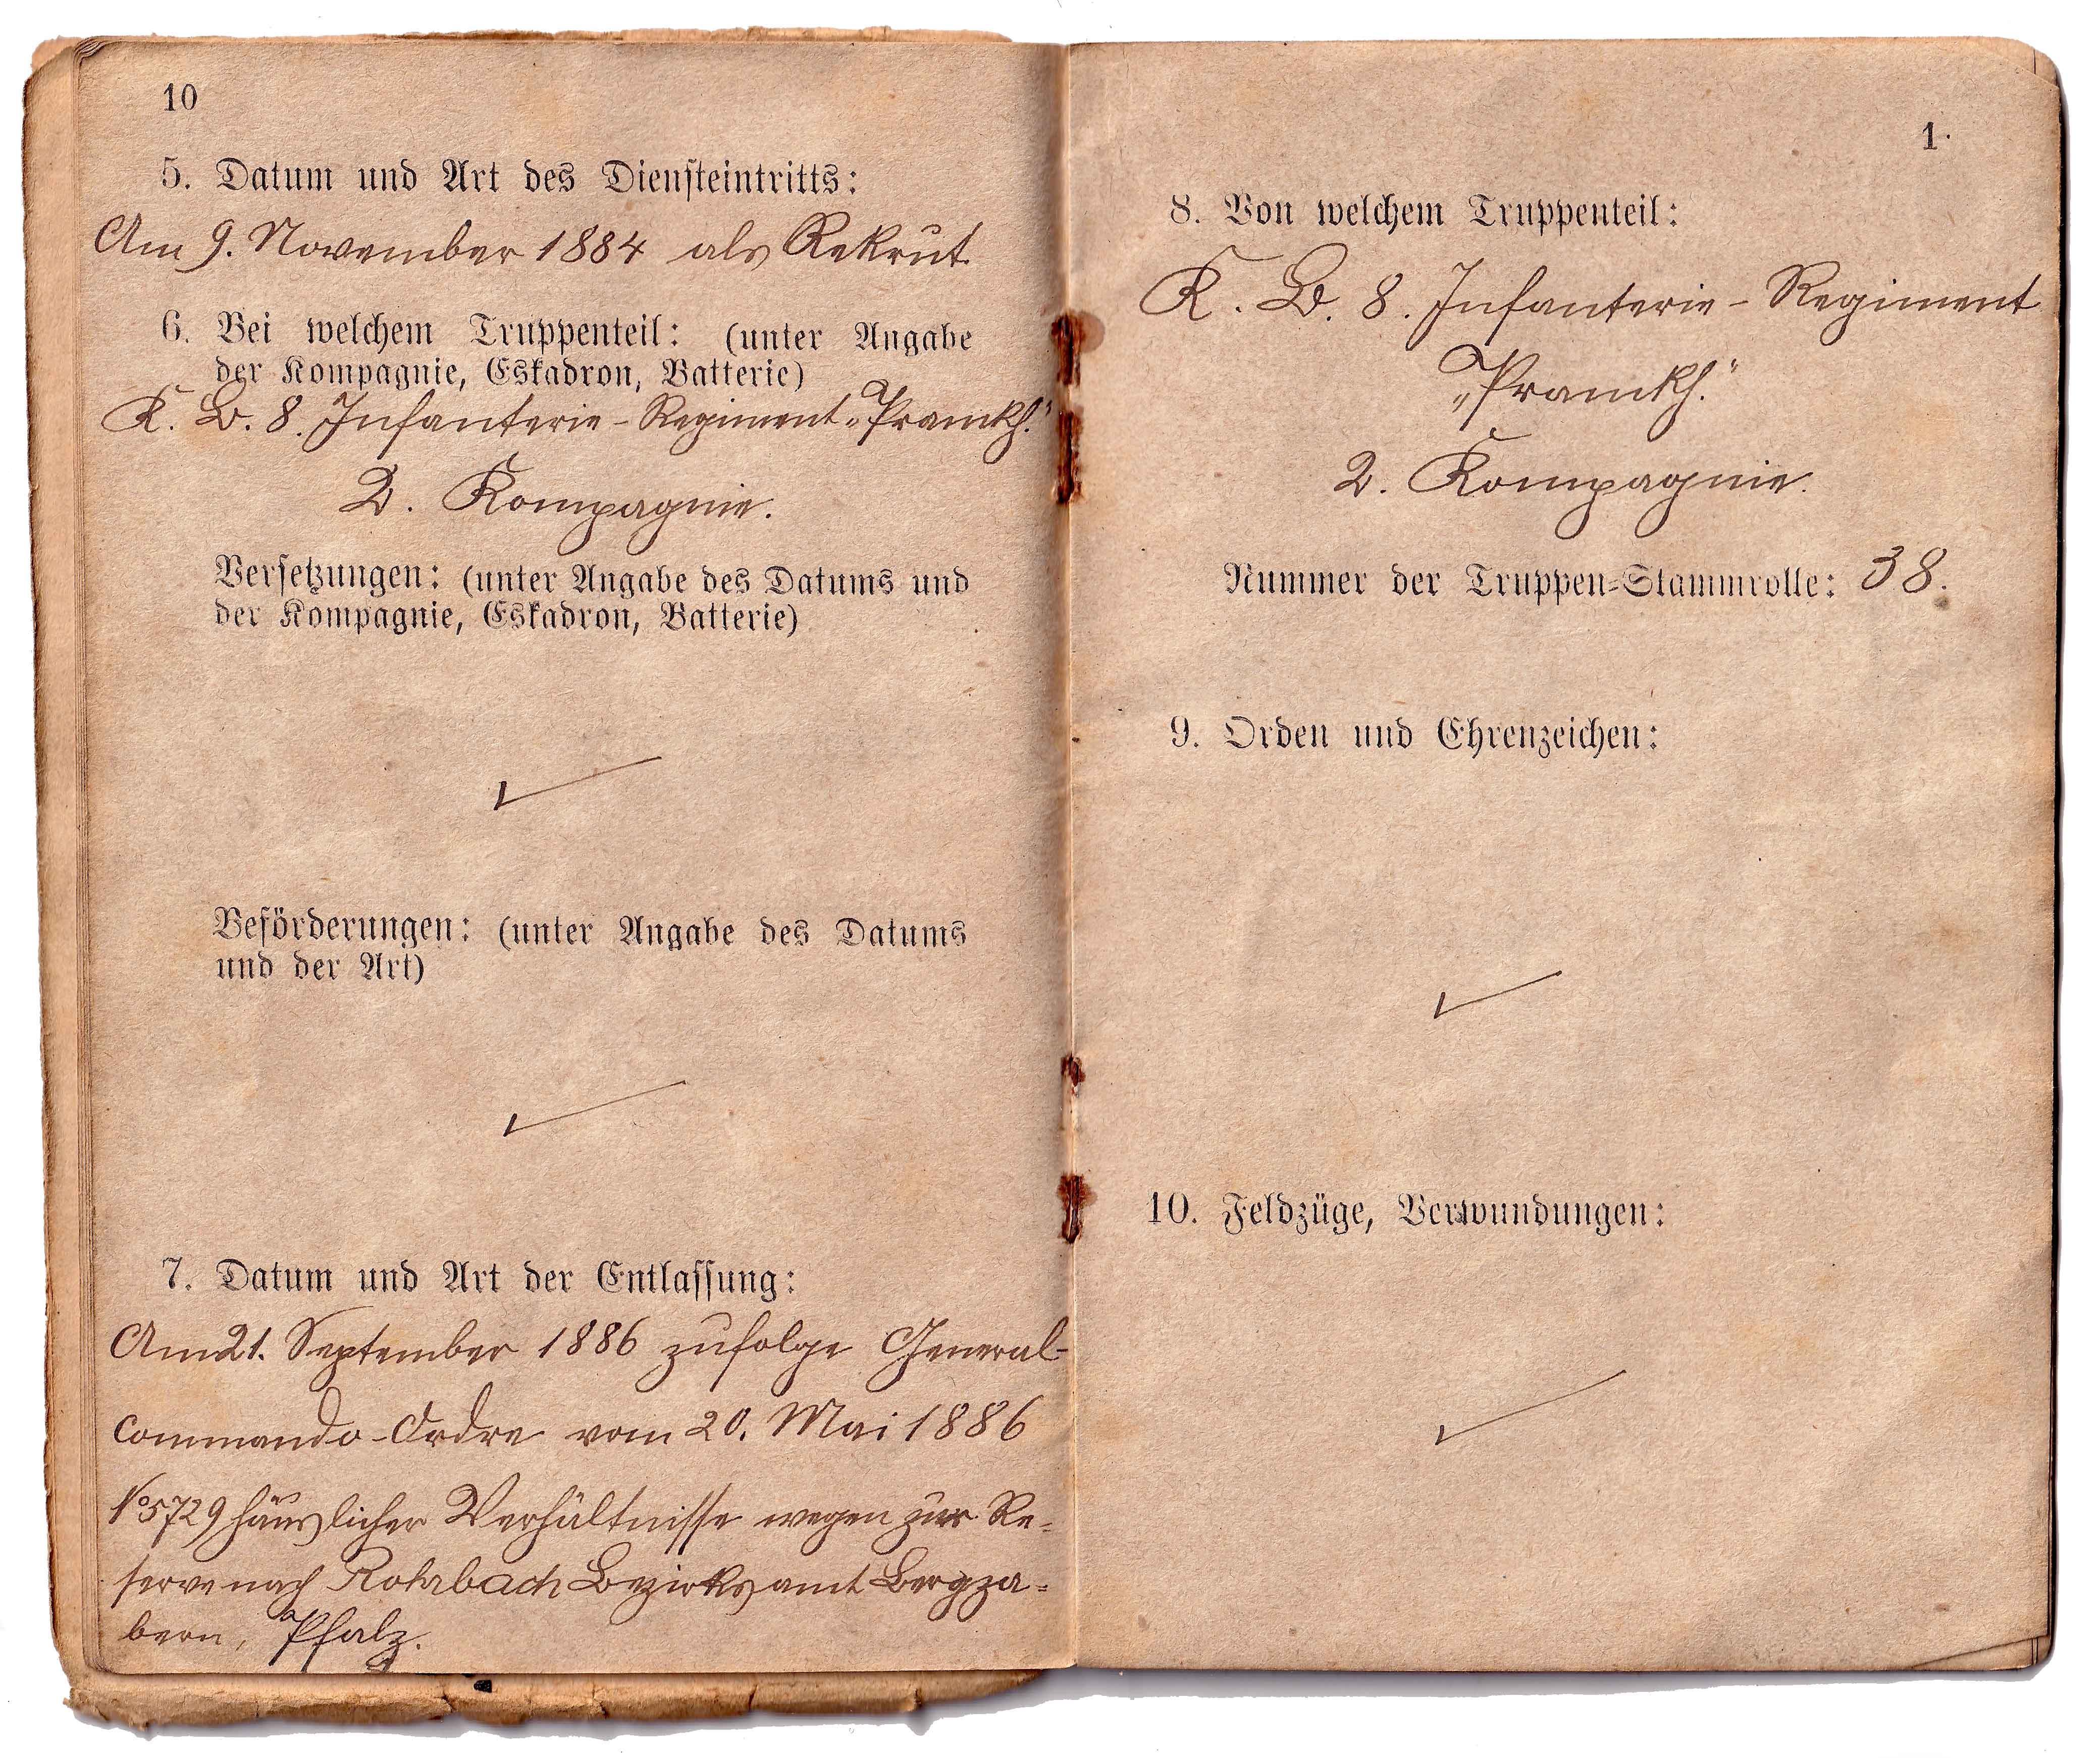 10
5. Datum und Art des Diensteintritts:
Am 9. November 1884 als Rekrut.
6. Bei welchem Truppenteil: (unter Angabe
der Kompagnie, Eskadron, Batterie)
K. B. 8. Infanterie-Regiment „Pranckh."
2. Kompagnie.
Versetzungen: (unter Angabe des Datums und
der Kompagnie, Eskadron, Batterie)
Beförderungen: (unter Angabe des Datums
und der Art)
7. Datum und Art der Entlassung:
Am 21. September 1886 zufolge General-
commando-Ordre vom 20. Mai 1886
No 5729 häuslicher Verhältnisse wegen zur Re-
serve nach Rohrbach Bezirksamt Bergza-
bern, Pfalz.
1
8. Von welchem Truppenteil:
K. B. 8. Infanterie-Regiment
„Pranckh."
2. Kompagnie.
Nummer der Truppen-Stammrolle: 38.
9. Orden und Ehrenzeichen:
10. Feldzüge, Verwundungen: